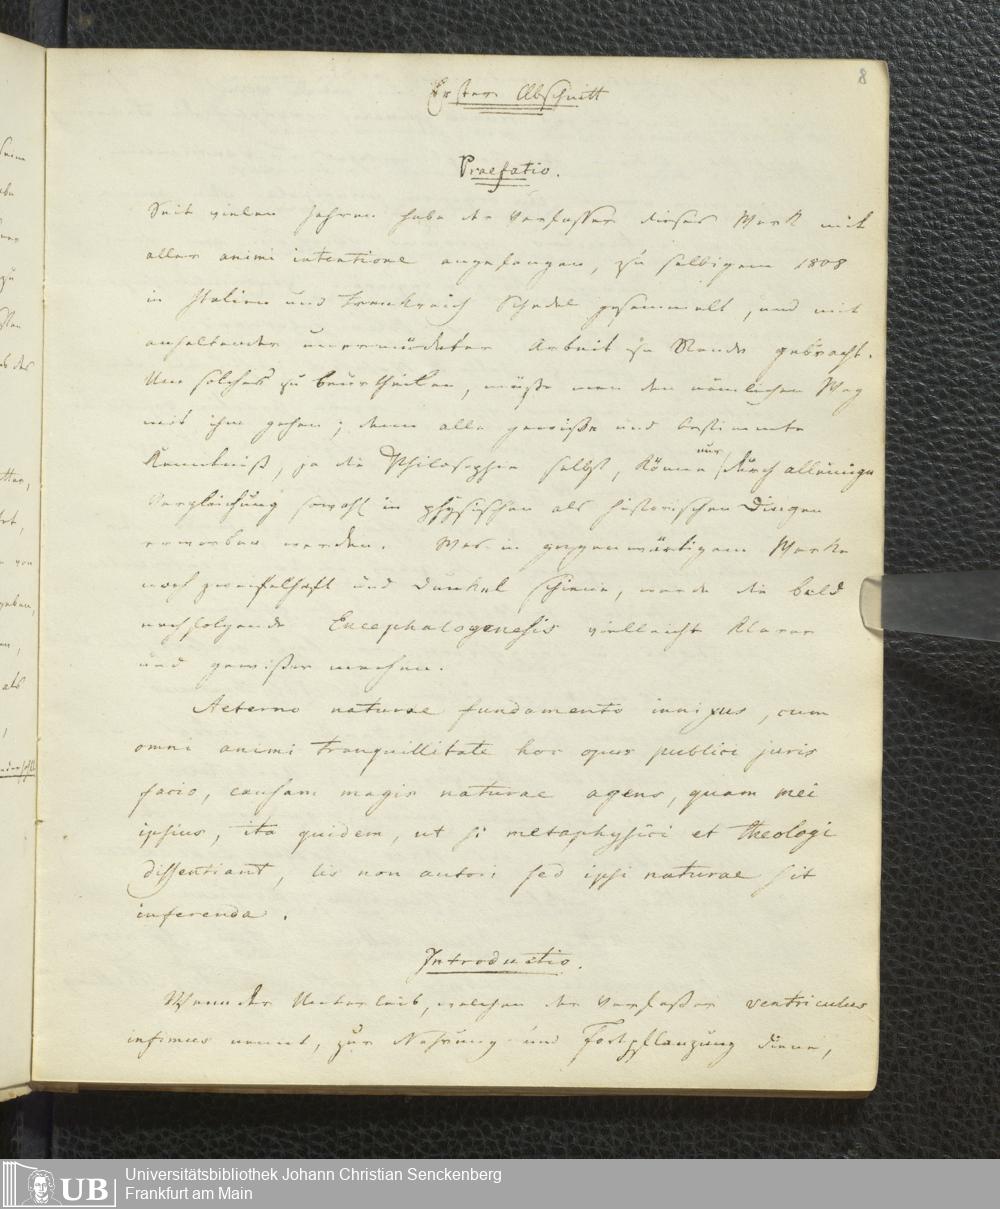 8
Erster Abschnitt
Praefatio.
Seit vielen Jahren habe der Verfasser dieses Werk mit
aller animi intentione angefangen, zu selbigem 1808
in Italien und Frankreich Schedel gesammelt, und mit
anhaltender unermüdeter Arbeit zu Stande gebracht.
Um solches zu beurtheilen, müße man den nämlichen Weg
mit ihm gehen; denn alle gewiße und bestimmte
Kenntniß, ja die Philosophie selbst, könne nur durch alleinige
Vergleichung sowohl in physischen als historischen Dingen
erworben werden. Was in gegenwärtigem Werke
noch zweifelhaft und dunkel schiene, werde die bald
nachfolgende Encephalogenesis vielleicht klarer
und gewißer machen.
Aeterno naturae fundamento innixus, cum
omni animi tranquillitate hoc opus publici juris
facio, causam magis naturae agens, quam mei
ipsius, ita quidem, ut si metaphysici et theologi
dissentiant, lis non autori sed ipsi naturae sit
inferenda.
Introductio.
Wenn der Unterleib, welchen der Verfaßer ventriculus
infimus nennt, zur Nahrung und Fortpflanzung diene,
UB
Universitätsbibliothek Johann Christian Senckenberg
Frankfurt am Main